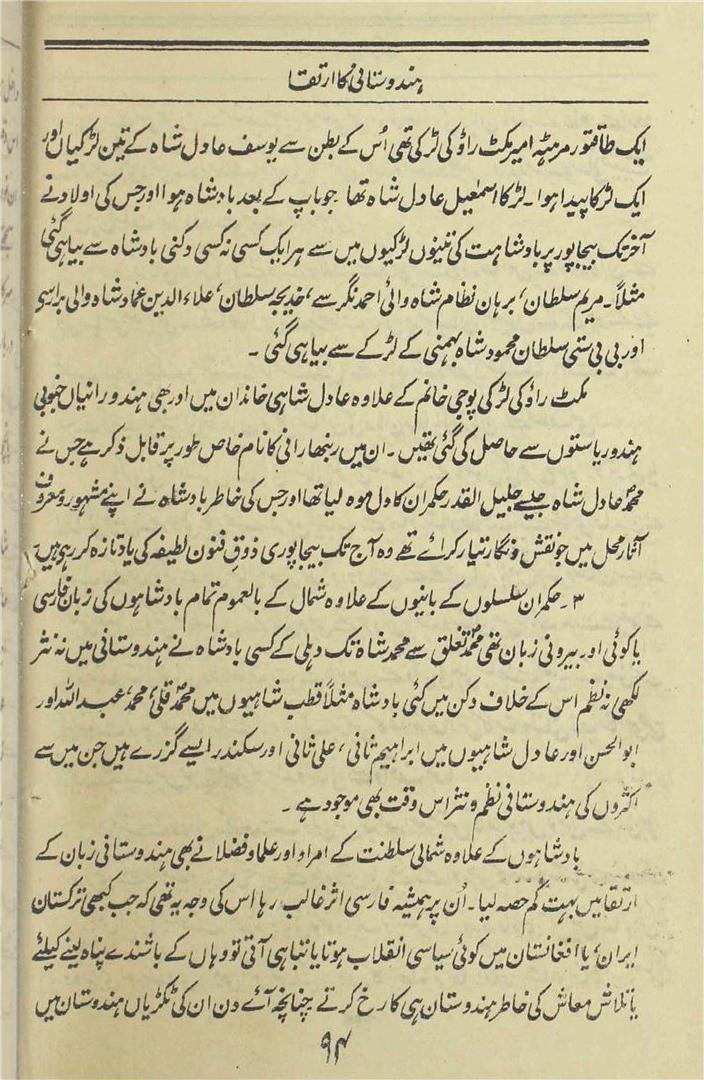 ہندوستانی کا ارتقا
ایک طاقتور مرہٹہ امیر مکٹ راؤ کی لڑکی تھی اُس کے بطن سے یوسف عادل شاہ کے تین لڑکیاں اور
ایک لڑکا پیدا ہوا۔ لڑکا اسمٰعیل عادل شاہ تھا جو باپ کے بعد بادشاہ ہوا اور جس کی اولاد نے
آخر تک بیجاپور پر بادشاہت کی تینوں لڑکیوں میں سے ہر ایک کسی نہ کسی دکنی بادشاہ سے بیاہی گئی
مثلاً۔ مریم سلطان، برہان نظام شاہ وائی احمد نگر سے، خدیجہ سلطان، علاء الدین عماد شاہ والی برار سے
اور بی بی ستی سلطان محمود شاہ بہمنی کے لڑکے سے بیاہی گئی۔
مکٹ راؤ کی لڑکی پوجی خانم کے علاوہ عادل شاہی خاندان میں اور بھی ہندو رانیاں جنوبی
ہندو ریاستوں سے حاصل کی گئی تھیں۔ ان میں رنبھا رانی کا نام خاص طور پر قابل ذکر ہے جس نے
محمدؐ عادل شاہ جیسے جلیل القدر حکمران کا دل موہ لیا تھا اور جس کی خاطر بادشاہ نے اپنے مشہور و معروف
آثار محل میں جو نقش و نگار تیار کرائے تھے وہ آج تک بیجاپوری ذوقِ فنون لطیفہ کی یاد تازہ کر رہے ہیں۔
۳۔ حکمران سلسلوں کے بانیوں کے علاوہ شمال کے بالعموم تمام بادشاہوں کی زبان فارسی
یا کوئی اور بیرونی زبان تھی محمدؐ تغلق سے محمد شاہ تک دہلی کے کسی بادشاہ نے ہندوستانی میں نہ نثر
لکھی نہ نظم اس کے خلاف دکن میں کئی بادشاہ مثلاً قطب شاہیوں میں محمدؐ قلی، محمدؐ، عبداللہ اور
ابوالحسن اور عادل شاہیوں میں ابراہیم ثانی، علی ثانی اور سکندر ایسے گزرے ہیں جن میں سے
اکثروں کی ہندوستانی نظم و نثر اس وقت بھی موجود ہے۔
بادشاہوں کے علاوہ شمالی سلطنت کے امراء اور علما و فضلا نے بھی ہندوستانی زبان کے
ارتقا میں بہت کم حصہ لیا۔ اُن پر ہمیشہ فارسی اثر غالب رہا اس کی وجہ یہ تھی کہ جب کبھی ترکستان
ایران، یا افغانستان میں کوئی سیاسی انقلاب ہوتا یا تباہی آتی تو وہاں کے باشندے پناہ لینے کیلئے
یا تلاش معاش کی خاطر ہندوستان ہی کا رخ کرتے چنانچہ آئے دن ان کی ٹکڑیاں ہندوستان میں
۹۴